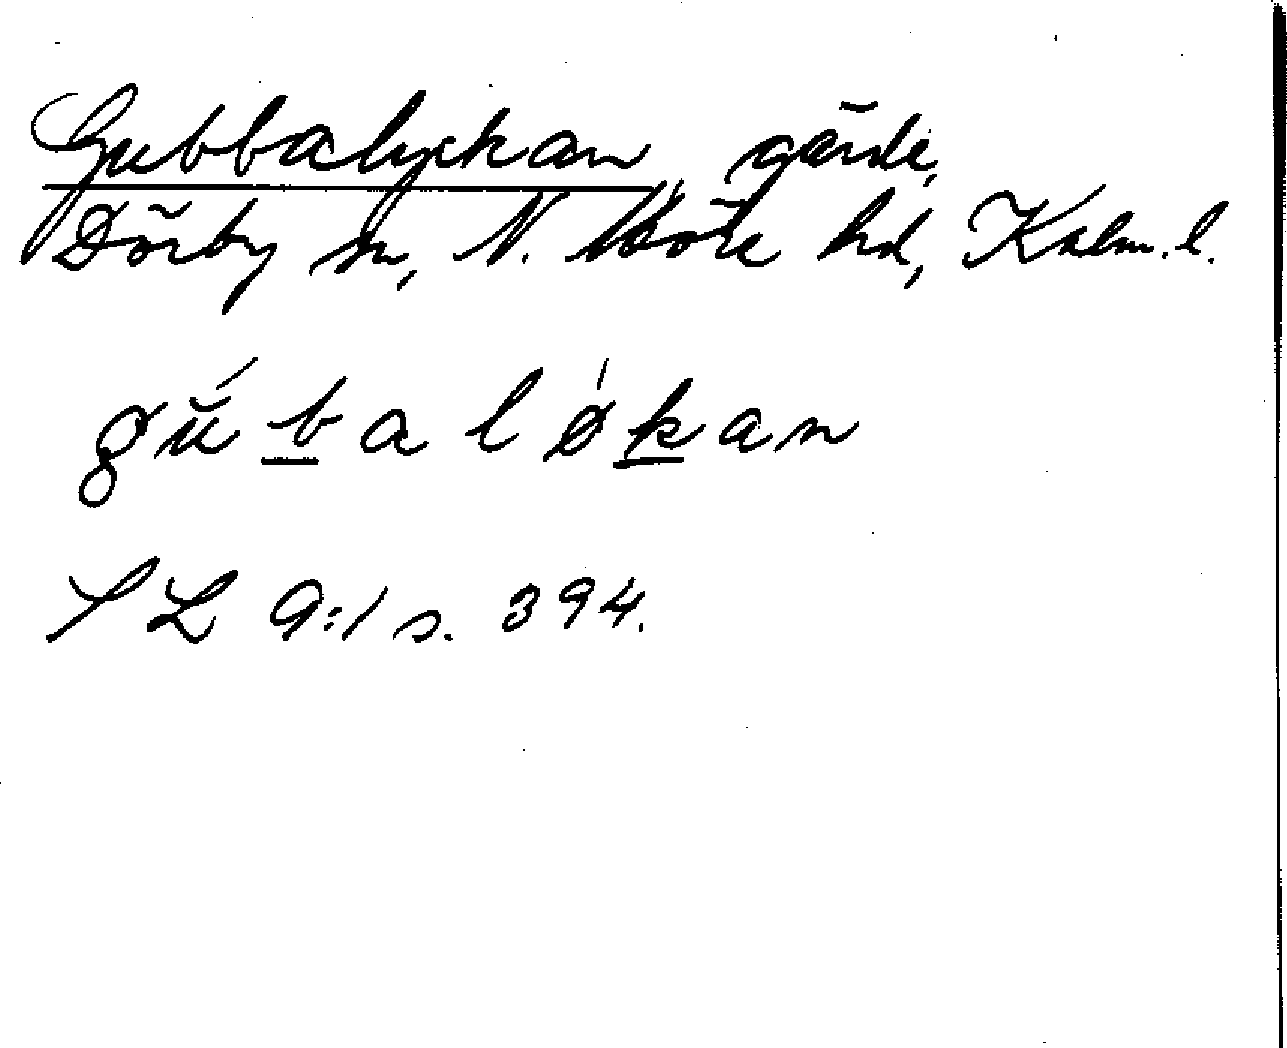 Gubbalyckan, gärde,
Dörby sn, N. Möre hd, Kalm. l.
gŭ́balǿkan
SL 9:1 s. 394.